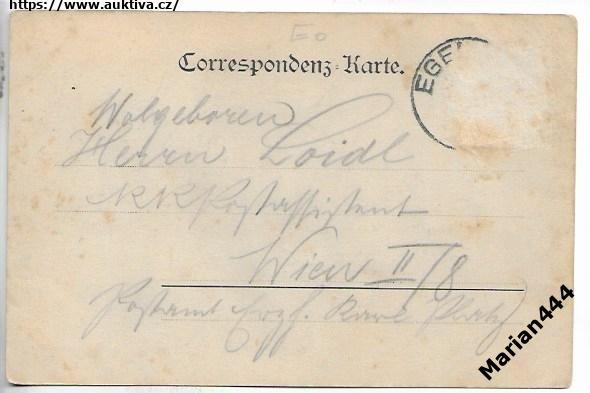 https://www.auktiva.cz/
Eo
Correspondenz-Karte.
EGE
Wolgeboren
Herrn Loidl
KK Postassistent
Wien II/8
Postamt Erzh. Karl Platz
Marian444